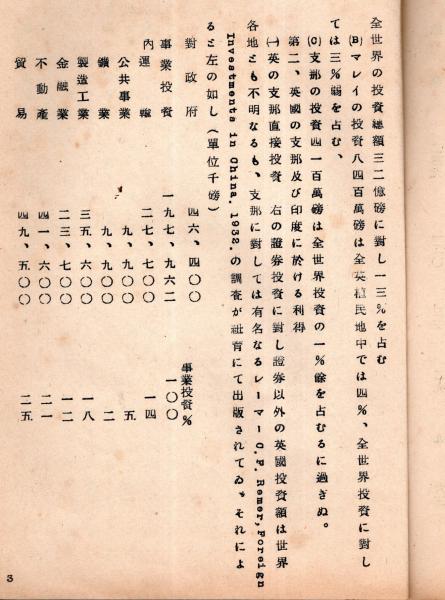 全世界の投資總額三二億磅に對し一三％を占む
(B)マレイの投資八四百萬磅は全英植民地中では四％、全世界投資に對し
ては三％弱を占む、
(C)支那の投資四一百萬磅は全世界投資の一％餘を占むるに過ぎぬ。
第二、英國の支那及び印度に於ける利得
(一)英の支那直接投資　右の證券投資に對し證券以外の英國投資額は世界
各地とも不明なるも、支那に對しては有名なるレーマーC.F. Remer, Foreign
Investments in China, 1932.の調査が紐育にて出版されてゐる。それによ
ると左の如し（單位千磅）
事業投資％
對政府　四六、四〇〇
事業投資　一九七、九六二　一〇〇
內運輸　二七、七〇〇　一四
公共事業　九、九〇〇　五
鑛業　九、九〇〇　二
製造工業　三五、六〇〇　一八
金融業　二三、七〇〇　一二
不動產　四一、六〇〇　二一
貿易　四九、五〇〇　二五
3